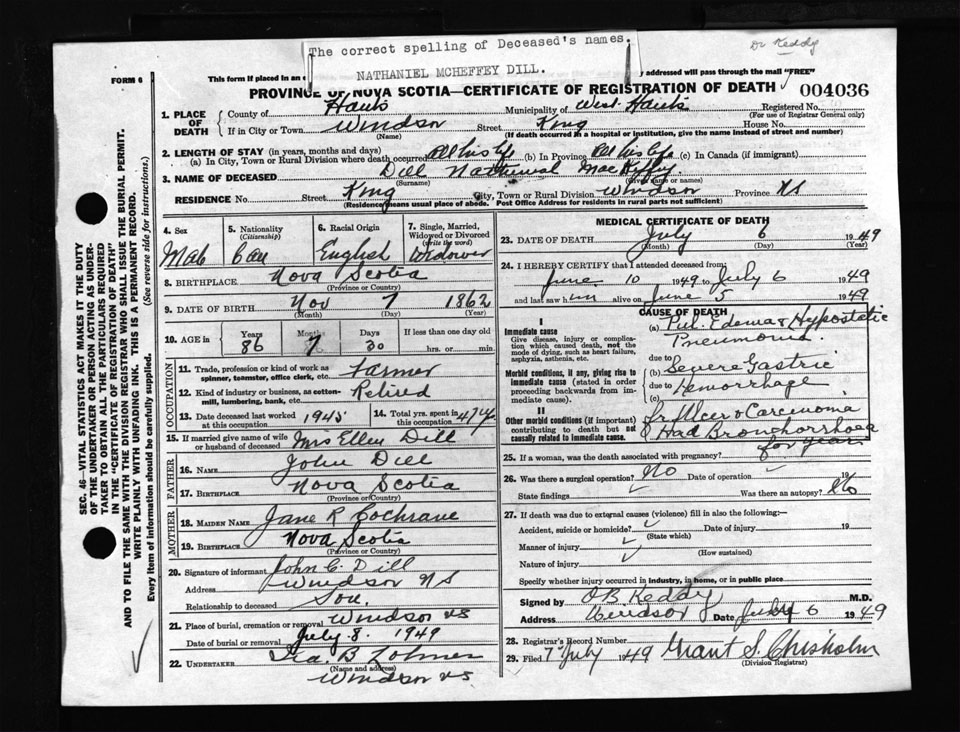 The correct spelling of Deceased's names.
NATHANIEL MCHEFFEY DILL.
Dr Keddy
FORM 6
This form if placed in an
addressed will pass through the mail "FREE"
PROVINCE OF NOVA SCOTIA—CERTIFICATE OF REGISTRATION OF DEATH
004036
1. PLACE OF DEATH
County of Hants Municipality of West Hants Registered No.
(For use of Registrar General only)
If in City or Town Windsor Street King House No.
(Name) (If death occurred in a hospital or institution, give the name instead of street and number)
2. LENGTH OF STAY (in years, months and days)
(a) In City, Town or Rural Division where death occurred All his life (b) In Province All his life (c) In Canada (if immigrant)
3. NAME OF DECEASED Dill Nathanial MacHeffy
(Surname) (Given name or names)
RESIDENCE No. Street King City, Town or Rural Division Windsor Province NS
(Residence means usual place of abode. Post Office Address for residents in rural parts not sufficient)
4. Sex
Male
5. Nationality (Citizenship)
Can
6. Racial Origin
English
7. Single, Married, Widowed or Divorced (write the word)
Widower
8. BIRTHPLACE Nova Scotia
(Province or Country)
9. DATE OF BIRTH Nov 7 1862
(Month) (Day) (Year)
10. AGE in Years Months Days If less than one day old
86 7 30 hrs. or min.
OCCUPATION
11. Trade, profession or kind of work as spinner, teamster, office clerk, etc. Farmer
12. Kind of industry or business, as cotton-mill, lumbering, bank, etc. Retired
13. Date deceased last worked at this occupation 1945
14. Total yrs. spent in this occupation 47 yr
15. If married give name of wife or husband of deceased Mrs Ellen Dill
FATHER
16. Name John Dill
17. Birthplace Nova Scotia
(Province or Country)
MOTHER
18. Maiden Name Jane R Cochrane
19. Birthplace Nova Scotia
(Province or Country)
20. Signature of informant John C. Dill
Address Windsor NS
Relationship to deceased Son.
21. Place of burial, cremation or removal Windsor NS
Date of burial or removal July 8. 1949
22. UNDERTAKER Ira. B.
(Name and address)
Windsor NS
MEDICAL CERTIFICATE OF DEATH
23. DATE OF DEATH July 6 1949
(Month) (Day) (Year)
24. I HEREBY CERTIFY that I attended deceased from:
June 10 1949 to July 6 1949
and last saw him alive on June 5 1949
CAUSE OF DEATH
I
Immediate cause
Give disease, injury or complication which caused death, not the mode of dying, such as heart failure, asphyxia, asthenia, etc.
(a) Pul. Edema & Hypostatic
Pneumonia.
due to
Morbid conditions, if any, giving rise to immediate cause (stated in order proceeding backwards from immediate cause).
(b) Severe Gastric
due to Hemorrhage
(c)
II
Other morbid conditions (if important) contributing to death but not causally related to immediate cause.
fr Ulcer & Carcinoma
Had Bronchorrhoea
for years
25. If a woman, was the death associated with pregnancy?
26. Was there a surgical operation? No Date of operation 19
State findings Was there an autopsy? No
27. If death was due to external causes (violence) fill in also the following:—
Accident, suicide or homicide? Date of injury 19
(State which)
Manner of injury
(How sustained)
Nature of injury
Specify whether injury occurred in industry, in home, or in public place
Signed by OB Keddy M.D.
Address Windsor Date July 6 1949
28. Registrar's Record Number
29. Filed 7 July 1949 Grant S. Chisholm
(Division Registrar)
SEC. 46—VITAL STATISTICS ACT MAKES IT THE DUTY
OF THE UNDERTAKER OR PERSON ACTING AS UNDER-
TAKER TO OBTAIN ALL THE PARTICULARS REQUIRED
IN THE "CERTIFICATE OF REGISTRATION OF DEATH"
AND TO FILE THE SAME WITH THE DIVISION REGISTRAR WHO SHALL ISSUE THE BURIAL PERMIT.
WRITE PLAINLY WITH UNFADING INK. THIS IS A PERMANENT RECORD.
Every item of information should be carefully supplied. (See reverse side for instructions.)